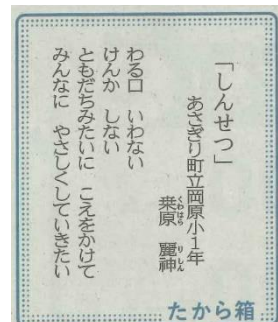 「しんせつ」
あさぎり町立岡原小1年
桒原 麗神
くわはら りしん
わる口 いわない
けんか しない
ともだちみたいに こえをかけて
みんなに やさしくしていきたい
たから箱